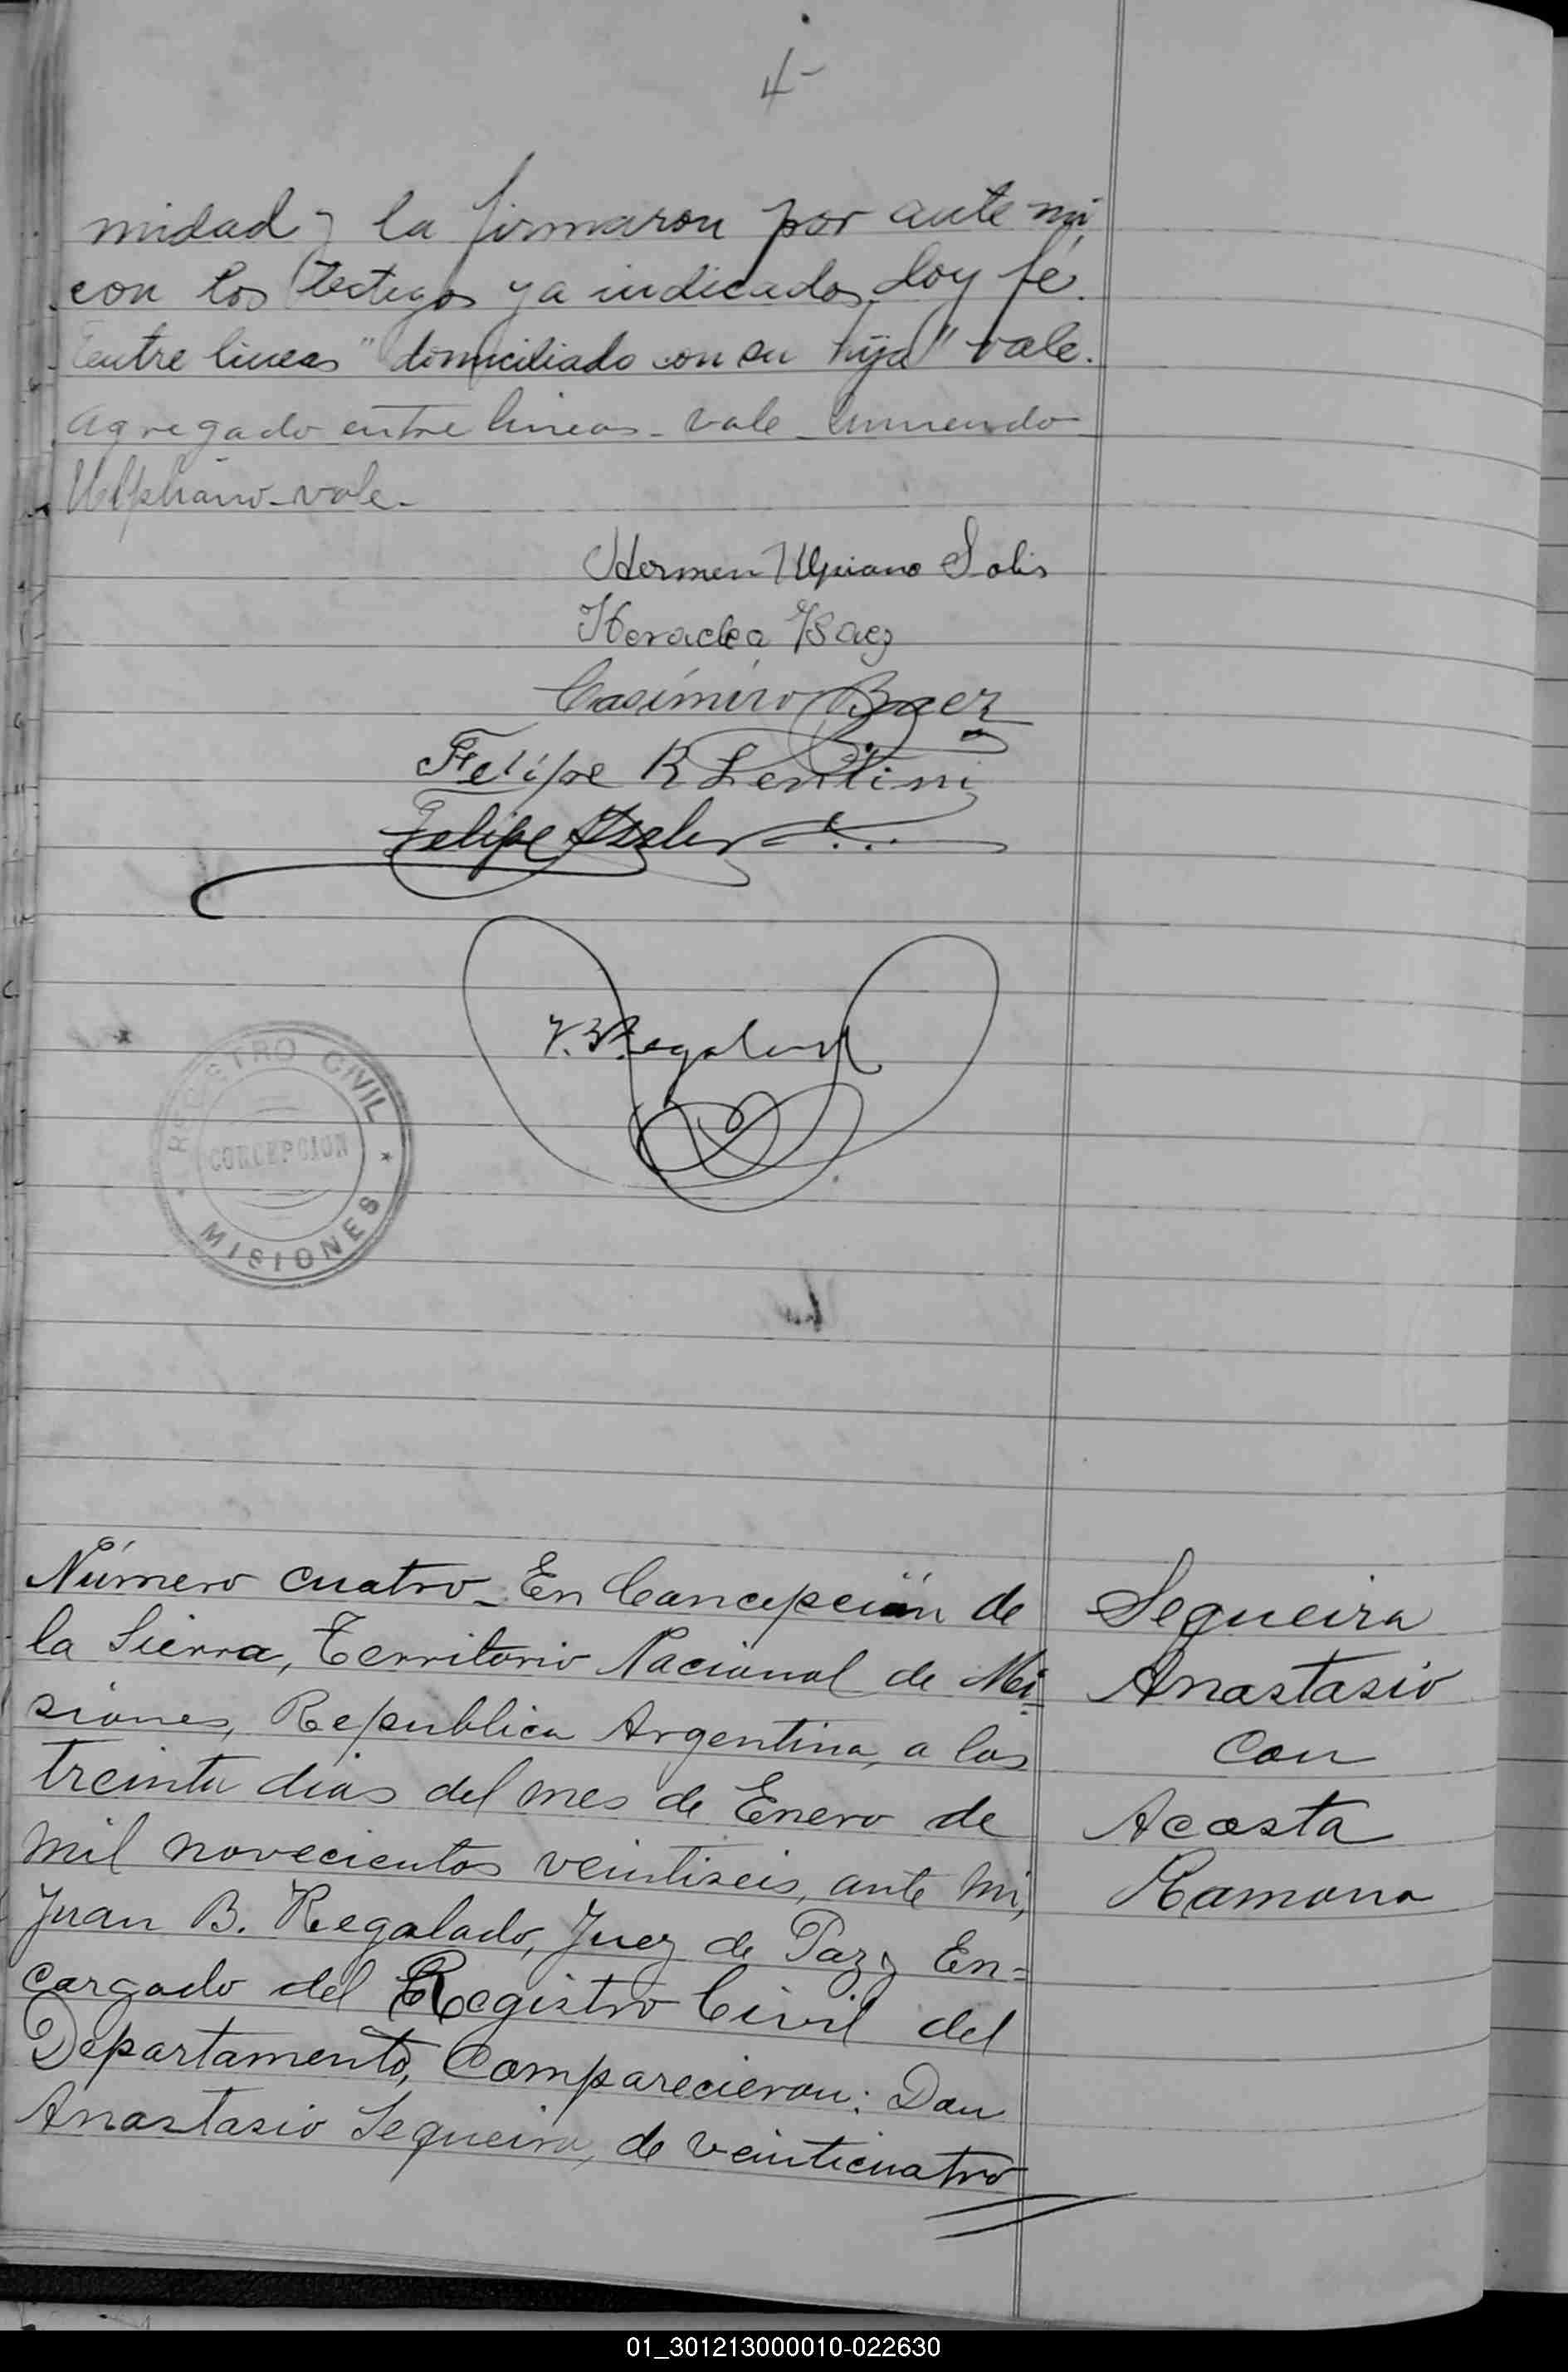 4-
midad y la firmaron por ante mi,
con los testigos ya indicados, doy fé.
entre lineas "domiciliado con su hija" vale.
Agregado entre lineas - vale - Enmendo
Ulpiano - vale -
Hermen Ulpiano Solis
Heraclea Baez
Casimiro Baez
Felipe R Lentini
Felipe
J. B. Regalado
REGISTRO CIVIL
CONCEPCION
MISIONES
Número cuatro - En Concepción de
la Sierra, Territorio Nacional de Mi-
siones, Republica Argentina, a los
treinta dias del mes de Enero de
mil novecientos veintiseis, ante mi,
Juan B. Regalado, Juez de Paz y En=
cargado del Registro Civil del
Departamento, Comparecieron: Don
Anastasio Sequeira, de veinticuatro
Sequeira
Anastasio
con
Acosta
Ramona
01_301213000010-022630